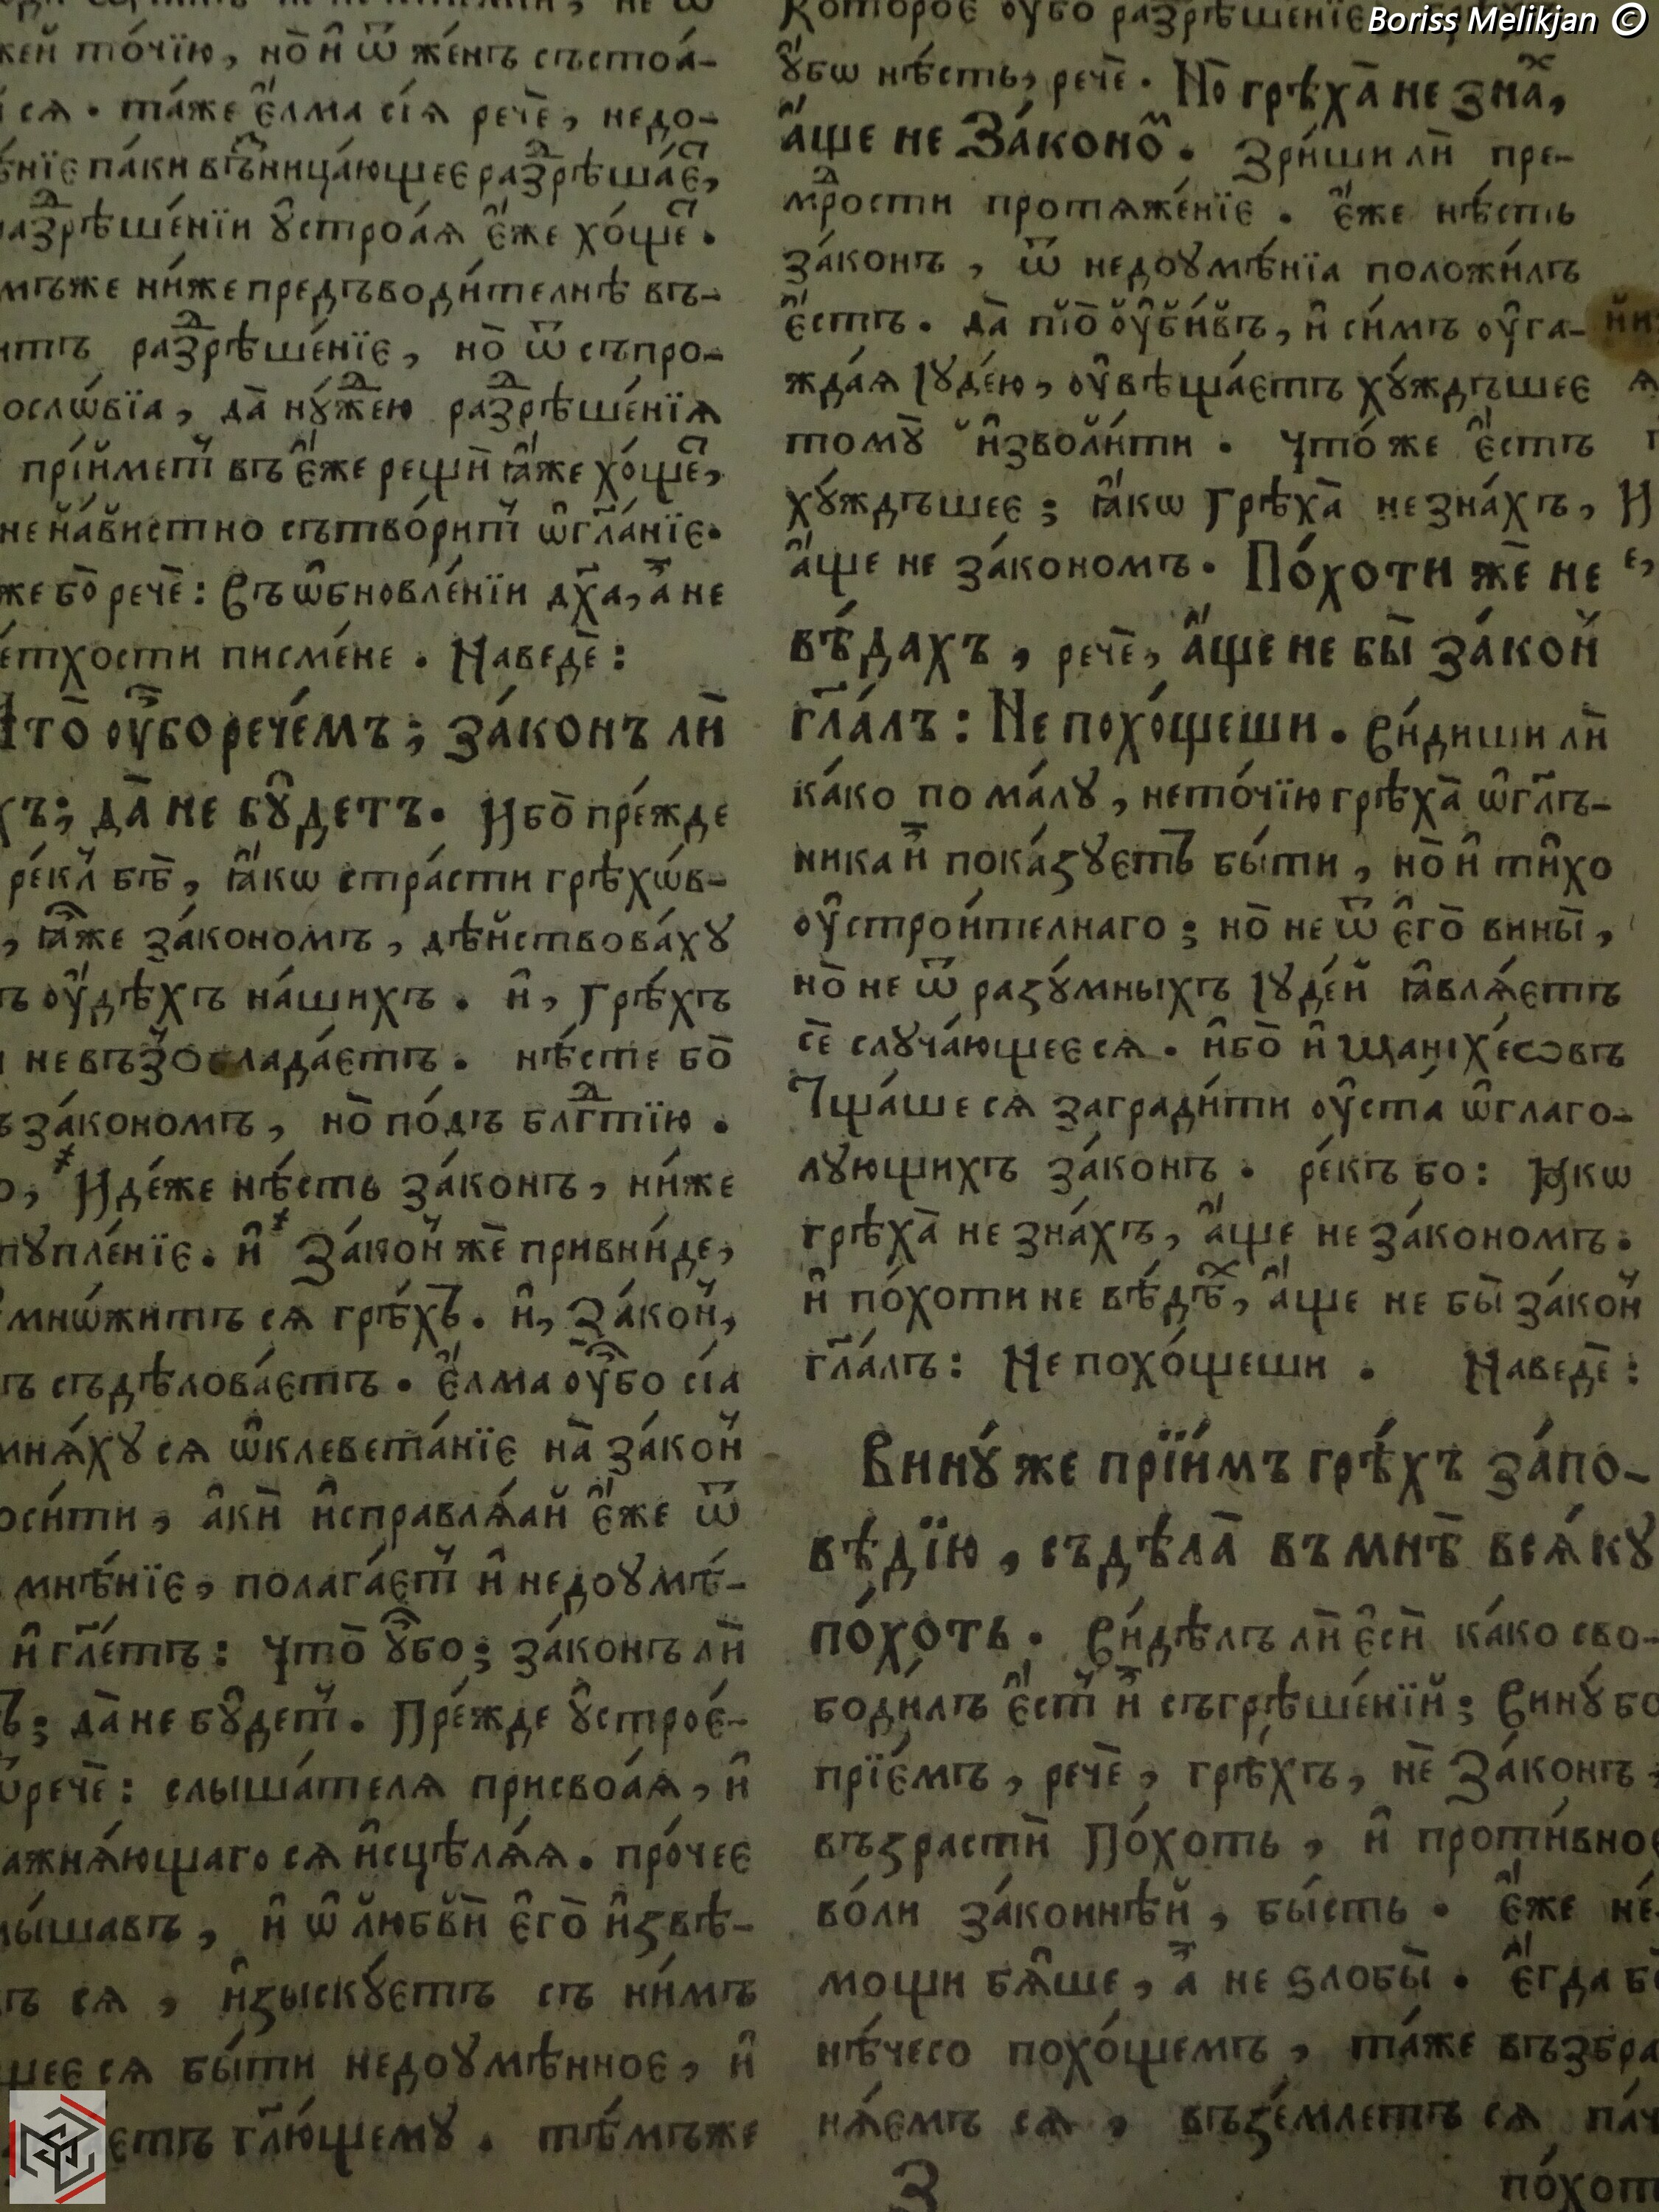 Boriss Melikjan ©
кей то́чїю, но̀ и҆ ѿ же́нъ състоа́-
сѧ . та́же є҆́лма сїѧ̀ речѐ, недо-
нїе па́ки въничца́ющеє разⷣрѣша́єⷮ,
разⷣрѣше́нїи ᲂу҆строа́ѧ є҆́же хо́щеⷮ.
мъже ни́же предъводи́телнѣ въ-
итъ разⷣрѣше́нїе, но̀ ѿ съпро-
ословїа, да̀ ну́жⷣею разⷣрѣше́нїѧ
прїи́метⸯ въ є҆́же рещѝ ꙗ҆́же хо́щеⷮ,
не на́вистно сътво́ритⸯ ѡ҆гл҃а́нїе.
же бо̀ речѐ: Въ ѡ҆бновле́нїи дх҃а, а҆ не
е́тхости писме́не . Наведѐ:
Что̀ ᲂу҆̀бо рече́мъ; за́конъ лѝ
хъ; да̀ не бꙋ́детъ. И҆бо̀ пре́жде
ре́клⸯ бѣ̀, ꙗ҆́кѡ стра́сти грѣхѡ́в-
, ꙗ҆̀же за́кономъ, дѣ́йствова́хꙋ
ъ ᲂу҆́дѣхъ на́шихъ . и҆, Грѣ́хъ
не въз̾ѡблада́єтъ . нѣ́сте бо̀
ъ за́кономъ, но̀ по́дъ бл҃гⷣтїю .
о, И҆дѣ́же нѣ́сть за́конъ, ни́же
пꙋпле́нїе. и҆ За́конⸯ жѐ привни́де,
мнѡ́житъ сѧ грѣ́хъ. и҆, За́конⸯ,
ъ съдѣлова́єтъ . є҆́лма ᲂу҆́бо сїа̀
мнѧ́хꙋ сѧ ѡ҆клевета́нїе на̀ за́конⸯ
оси́ти, а҆́ки и҆справлѧ́ѧй є҆́же ѿ
мнѣ́нїе, полага́єтⸯ и҆ недоꙋмѣ́-
и҆ гл҃етъ: Что̀ ᲂу҆́бо; за́конъ лѝ
ъ; да̀ не бꙋ́детⸯ. Пре́жде ᲂу҆строє́-
речѐ: слыша́телѧ присвоа́ѧ, и҆
ажнѧ́ющаго сѧ и҆сцѣлѧ́ѧ. про́чее
лы́шавъ, и҆ ѡ҆ любвѝ є҆го̀ и҆звѣ-
ъ сѧ , и҆зыскꙋ́єтъ съ ни́мъ
щее сѧ бы́ти недоꙋмѣ́нное, и҆
єтъ гл҃ю́щемꙋ . тѣ́мъже
Которое ᲂу҆бо разⷣрѣше́нїе
ᲂу҆́бѡ нѣ́сть, речѐ . Но̀ грѣха̀ не знаⷯ,
а҆́ще не За́кономⷨ . Зри́ши лѝ пре-
мⷣрости протѧже́нїе . є҆́же нѣ́сть
за́конъ , ѿ недоꙋмѣ́нїа положи́лъ
є҆́стъ . да̀ то̀ ᲂу҆би́въ, и҆ си́мъ ᲂу҆га-
жда́ѧ Іꙋде́ю, ᲂу҆вѣща́єтъ хꙋ́ждъшее
томꙋ̀ и҆зволи́ти . Что́ же є҆́стъ
хꙋ́ждъшее ; ꙗ҆́кѡ Грѣха̀ не зна́хъ,
а҆́ще не за́кономъ . По́хоти жѐ не
вѣ́дахъ , речѐ, а҆́ще не бы̀ за́конⸯ
гл҃а́лъ : Не похо́щеши . Ви́диши лѝ
ка́ко по ма́лꙋ, не то́чїю грѣха̀ ѡ҆гл҃ъ-
ника и҆ пока́зꙋєтъ бы́ти , но̀ и҆ ти́хо
ᲂу҆строи́телнаго ; но̀ не ѿ є҆го̀ вины̀ ,
но̀ не ѿ разꙋ́мныхъ Іꙋде́й ꙗ҆влѧ́єтъ
сѐ слꙋча́ющеє сѧ . и҆́бо̀ и҆ Маніхе́ѡвъ
Тща́ше сѧ загради́ти ᲂу҆ста̀ ѡ҆глаго-
лꙋющихъ за́конъ . ре́къ бо : Ꙗ҆кѡ
грѣха̀ не зна́хъ, а҆́ще не за́кономъ.
и҆ по́хоти не вѣ́дѣⷯ, а҆́ще не бы̀ за́конⸯ
гл҃а́лъ : Не похо́щеши . Наведѐ :
Винꙋ́ же прїи́мъ грѣ́хъ за́по-
вѣдїю , съдѣ́ла̀ въ мнѣ̀ всѧ́кꙋ
по́хоть . Ви́дѣлъ лѝ є҆сѝ ка́ко сво-
боди́лъ є҆́стⸯ и҆ съгрѣше́нїй ; Винꙋ́ бо
прїе́мъ , речѐ , грѣ́хъ , нѐ За́конъ
възрастѝ По́хоть , и҆ проти́вное
во́ли за́коннѣй , бы́сть . є҆́же не́-
мощи бѧ́ше , а҆ не ѕлобы̀ . є҆́гда бо
нѣ́чесо похо́щемъ , та́же възбра-
нѧ́ємъ сѧ , възе́млетъ сѧ па́ч
З
по́хот